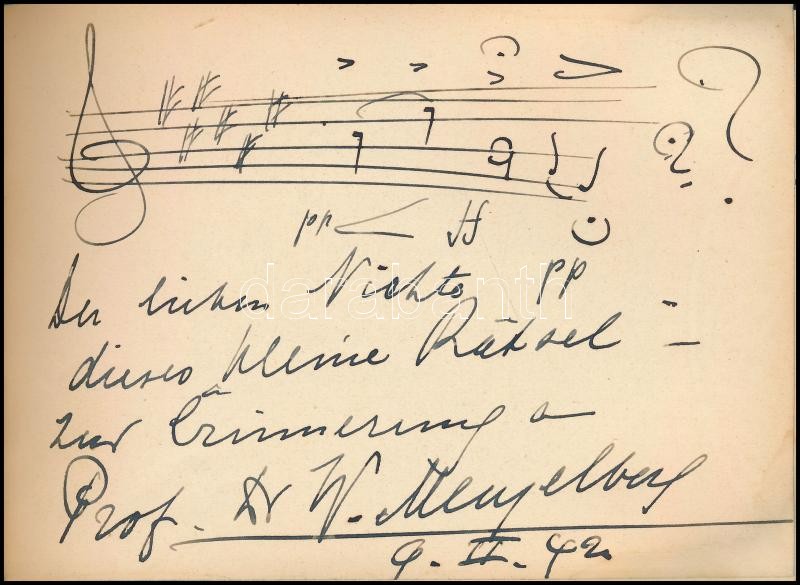 pp ff
pp
Der lieben Nichte
dieses kleine Rätsel –
zur Erinnerung a
Prof. Dr W. Mengelberg
9. II. 42
darabanth